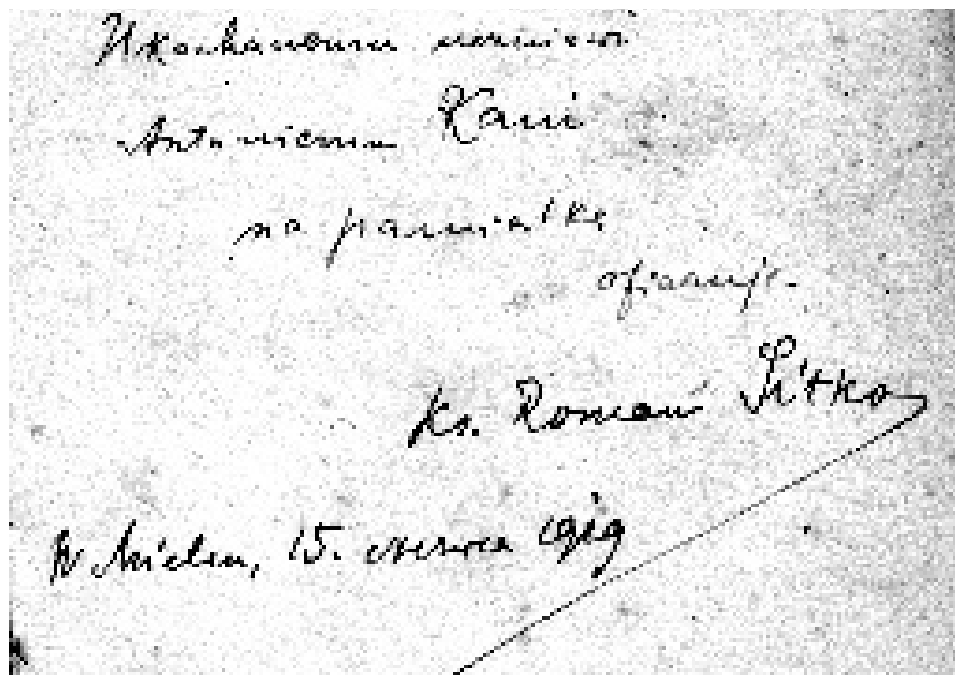 Ukochanemu uczniowi
Antoniemu Kani
na pamiątkę
ofiaruje
Ks. Roman Sitko
W Mielcu, 15. czerwca 1919